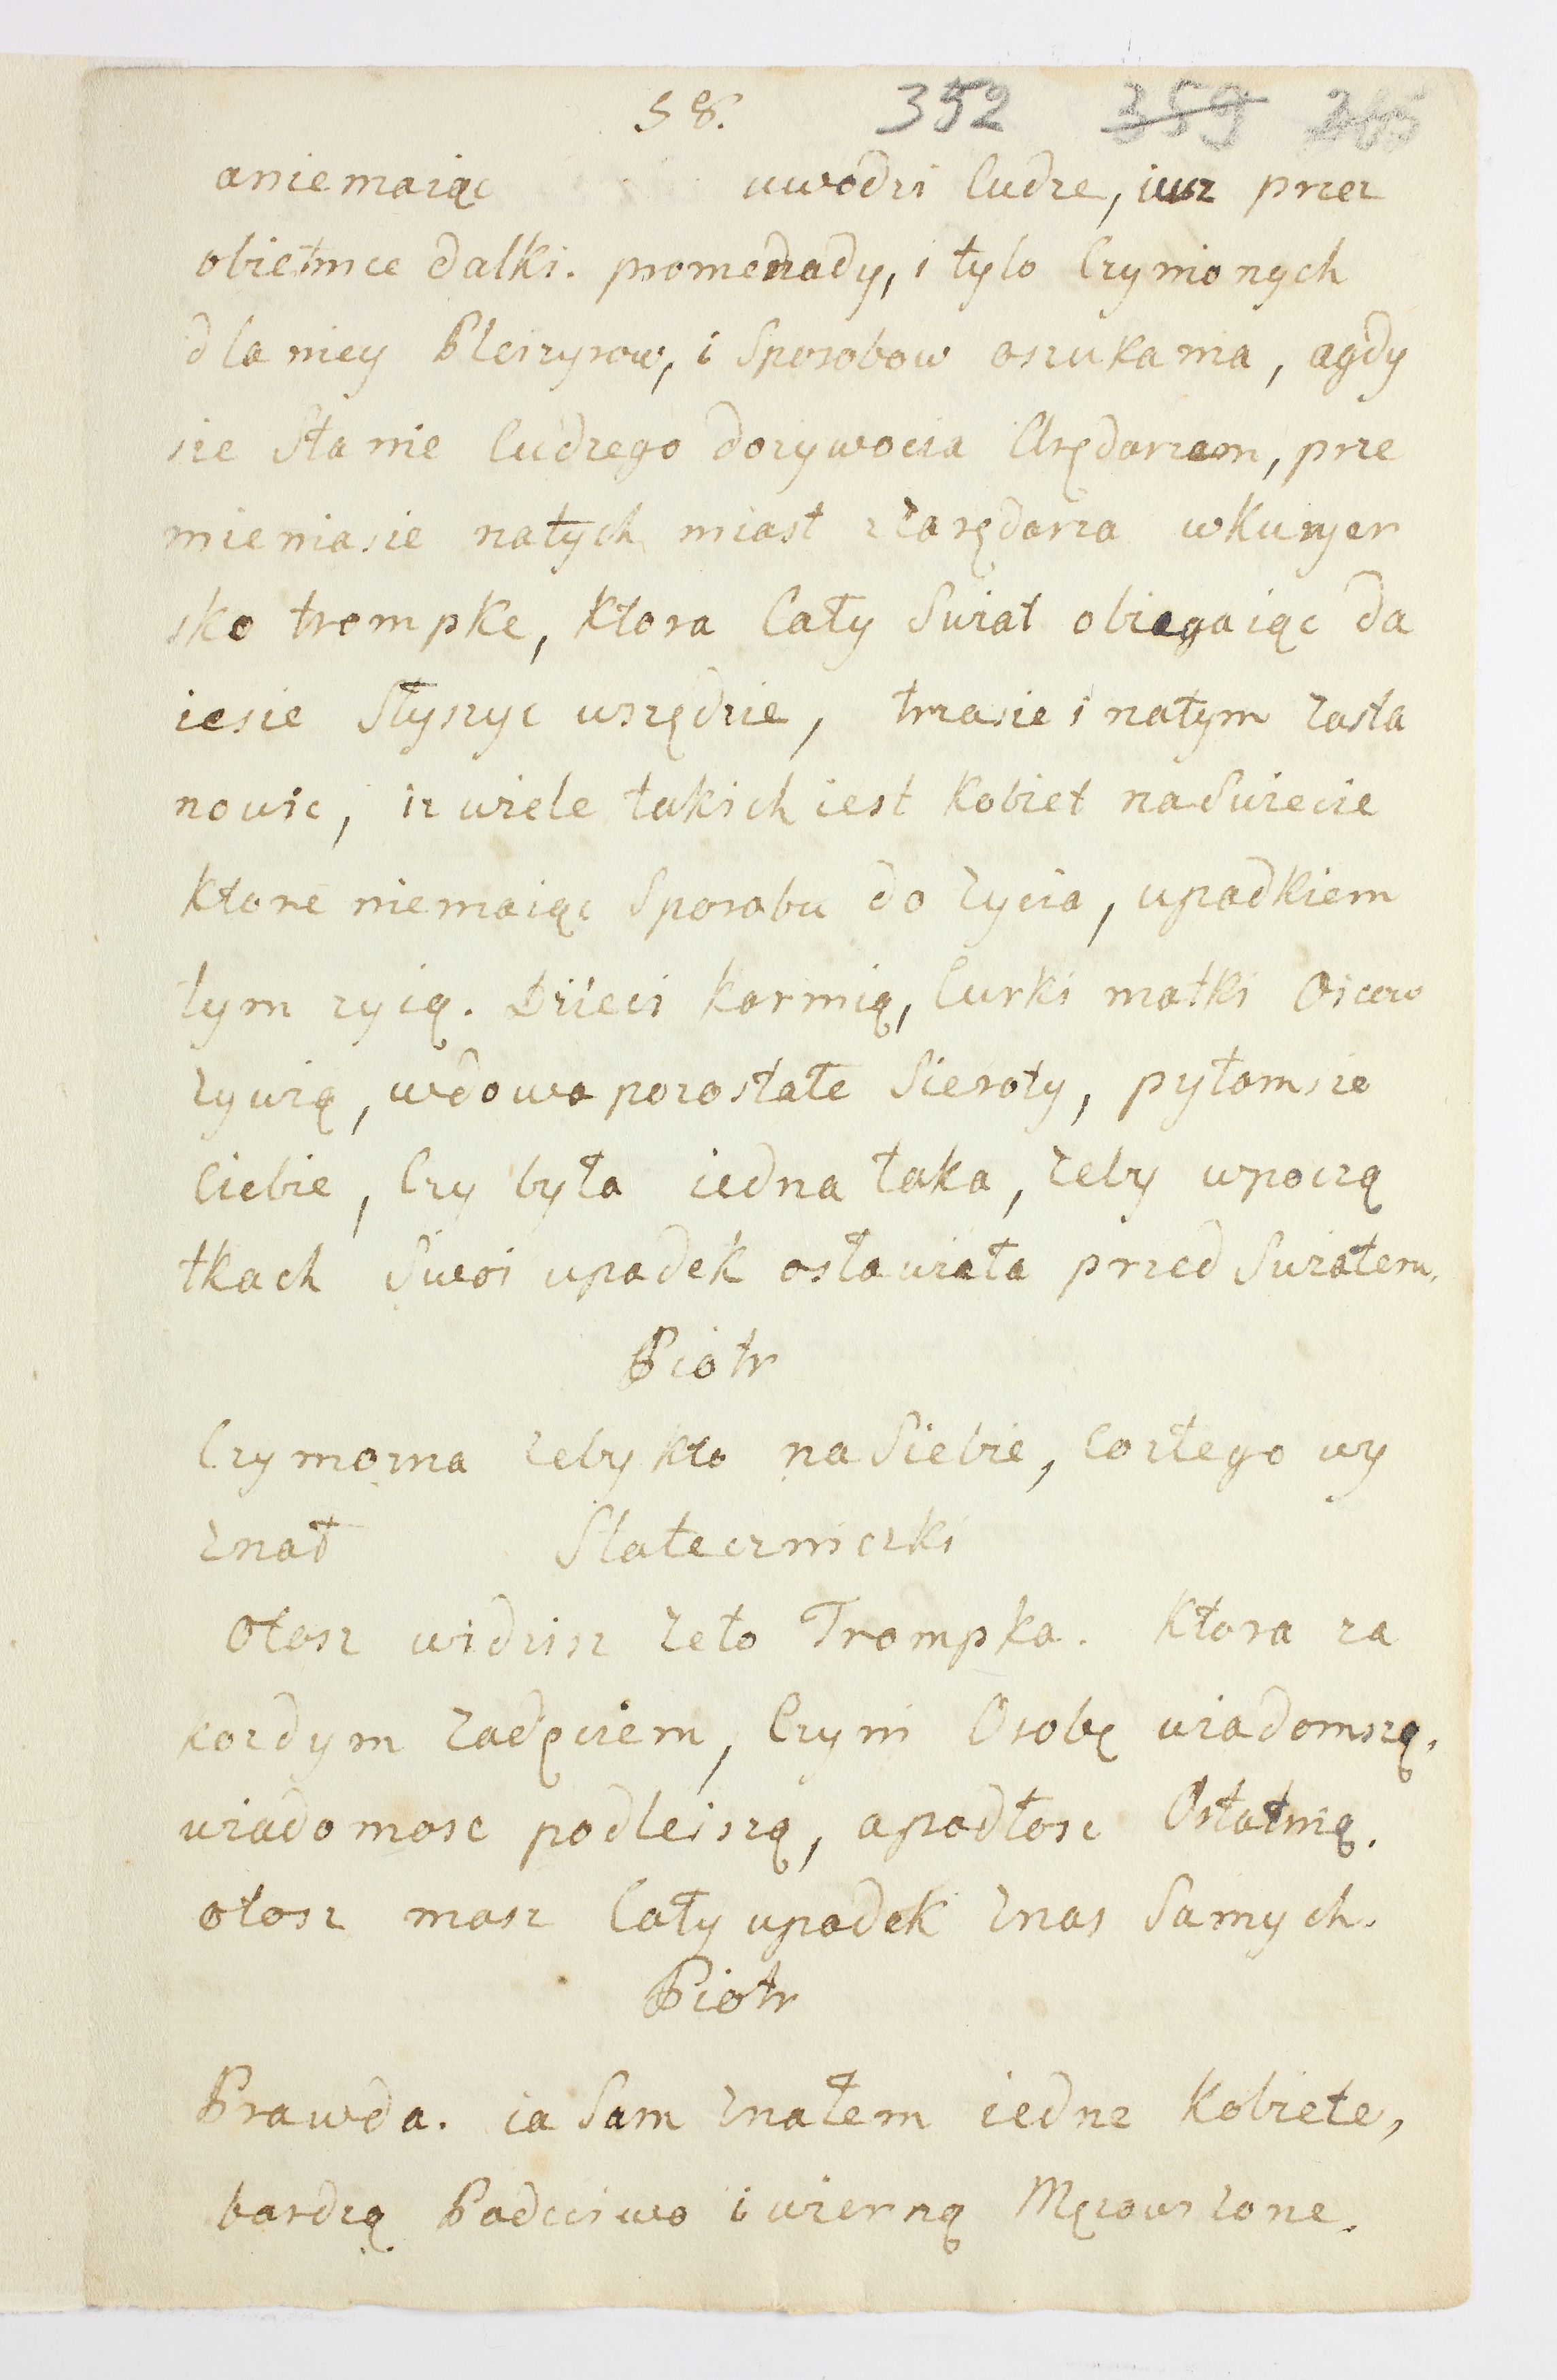 58. 352 359 265
aniemaiąc uwodzi ludze, iuz przez
obietnice dalki. promenady, i tylo Czynionych
dla niey Pleizyrow, i Sposobow oszukania, agdy
sie Stanie Cudzego dozywocia Arędarzem, prze
mieniasie natych miast zarędarza wkuryer
sko trompke, ktora Cały Swiat obiegaiąc da
iesie Słyszyc wszędzie, trzasie i natym zasta
nowic, iz wiele takich iest kobiet na Swiecie
ktore niemaiąc Sposobu do zycia, upadkiem
tym zyią. Dzieci karmią, Curki matki Oicow
zywią, wdowa pozostałe Sieroty, pytamsie
Ciebie, Czy była iedna taka, zeby wpoczą
tkach Swoi upadek ostawiała przed Swiatem.
Piotr
Czy mozna zeby kto na Siebie, Cozłego wy
znał Stateczniczki
Otosz widzisz zeto Trompka. Ktora za
kozdym zadęciem, Czyni Osobę wiadomszą.
wiadomosc podleiszą, apodłosc Ostatnią.
otosz masz Cały upadek znas Samych.
Piotr
Prawda. ia Sam znałem iedne kobiete,
bardzą Podcciwo i wierną Męzowi zone.